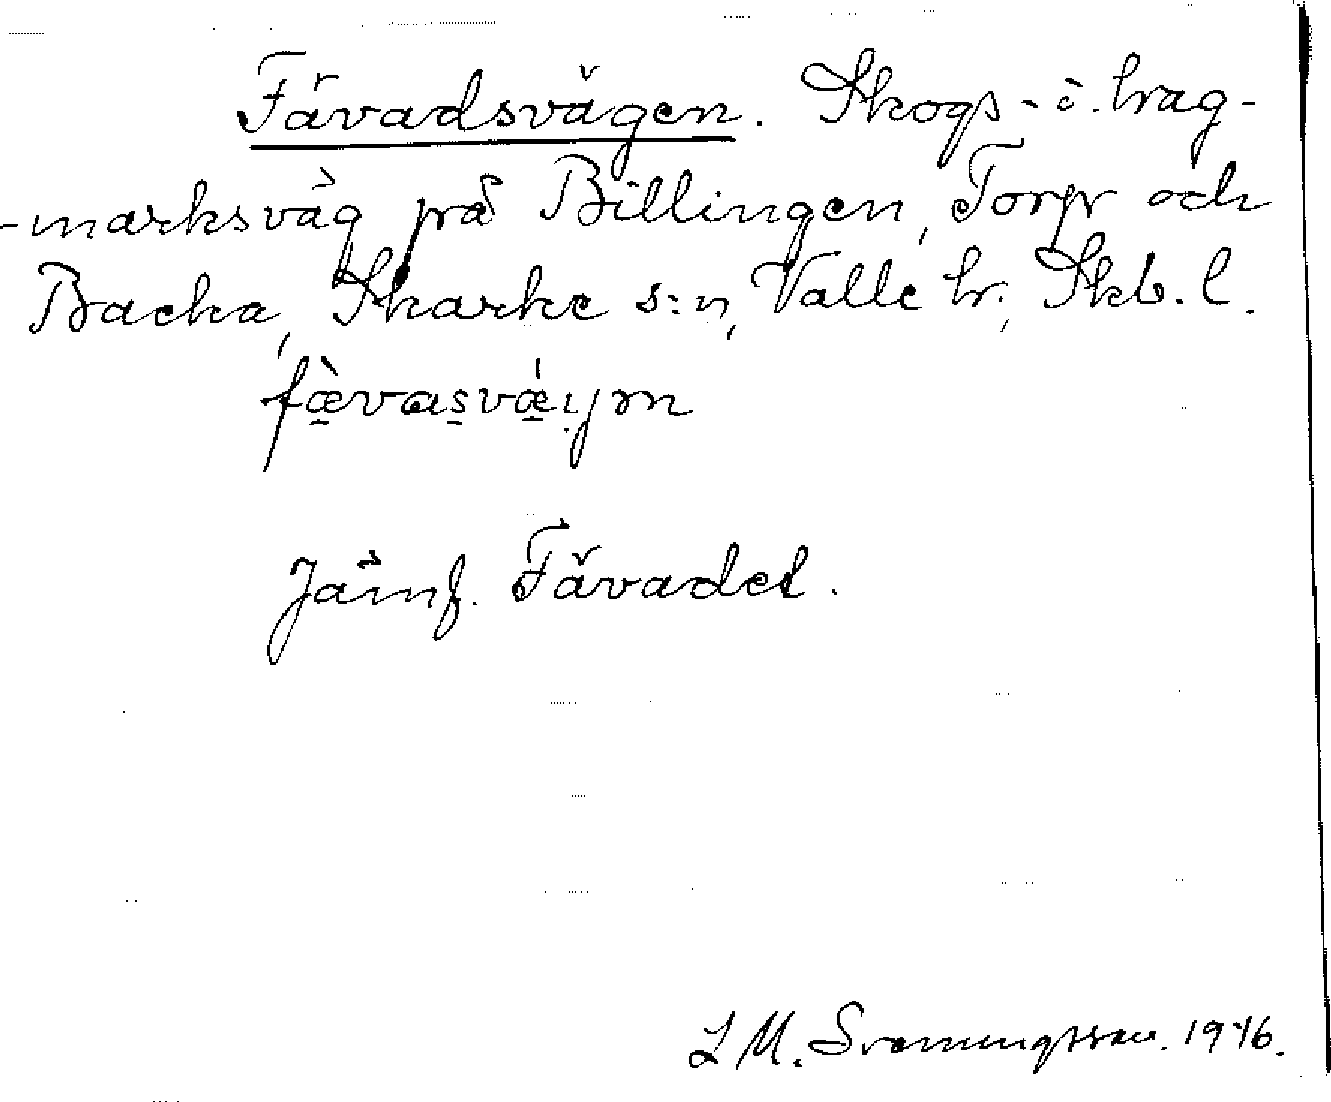 Fävadsvägen. Skogs- o. hag-
-marksväg på Billingen, Torp och
Backa, Skarke s:n, Valle hr, Skb. l.
fæ̀vasvǽɪɡm
Jämf. Fävadet.
L M. Svenningsson. 1946.